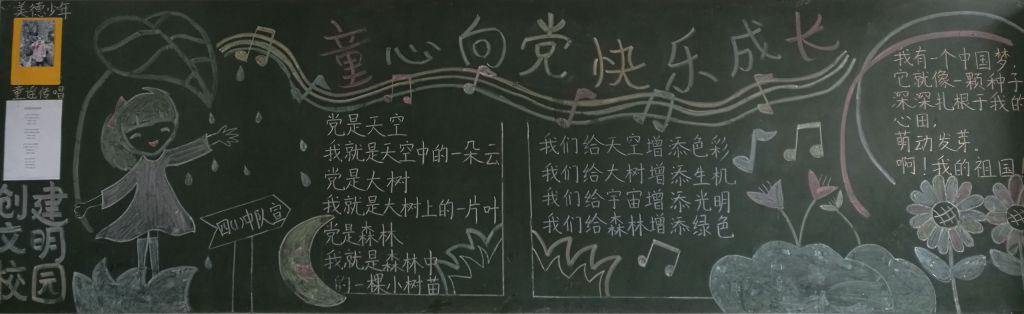 美德少年
童谣传唱
创建
文明
校园
童心向党 快乐成长
四(1)中队宣
党是天空
我就是天空中的一朵云
党是大树
我就是大树上的一片叶
党是森林
我就是森林中
的一棵小树苗
我们给天空增添色彩
我们给大树增添生机
我们给宇宙增添光明
我们给森林增添绿色
我有一个中国梦,
它就像一颗种子
深深扎根于我的
心田;
萌动发芽.
啊!我的祖国